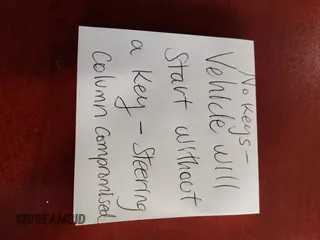 No keys -
Vehicle will
start without
a key - Steering
Column compromised